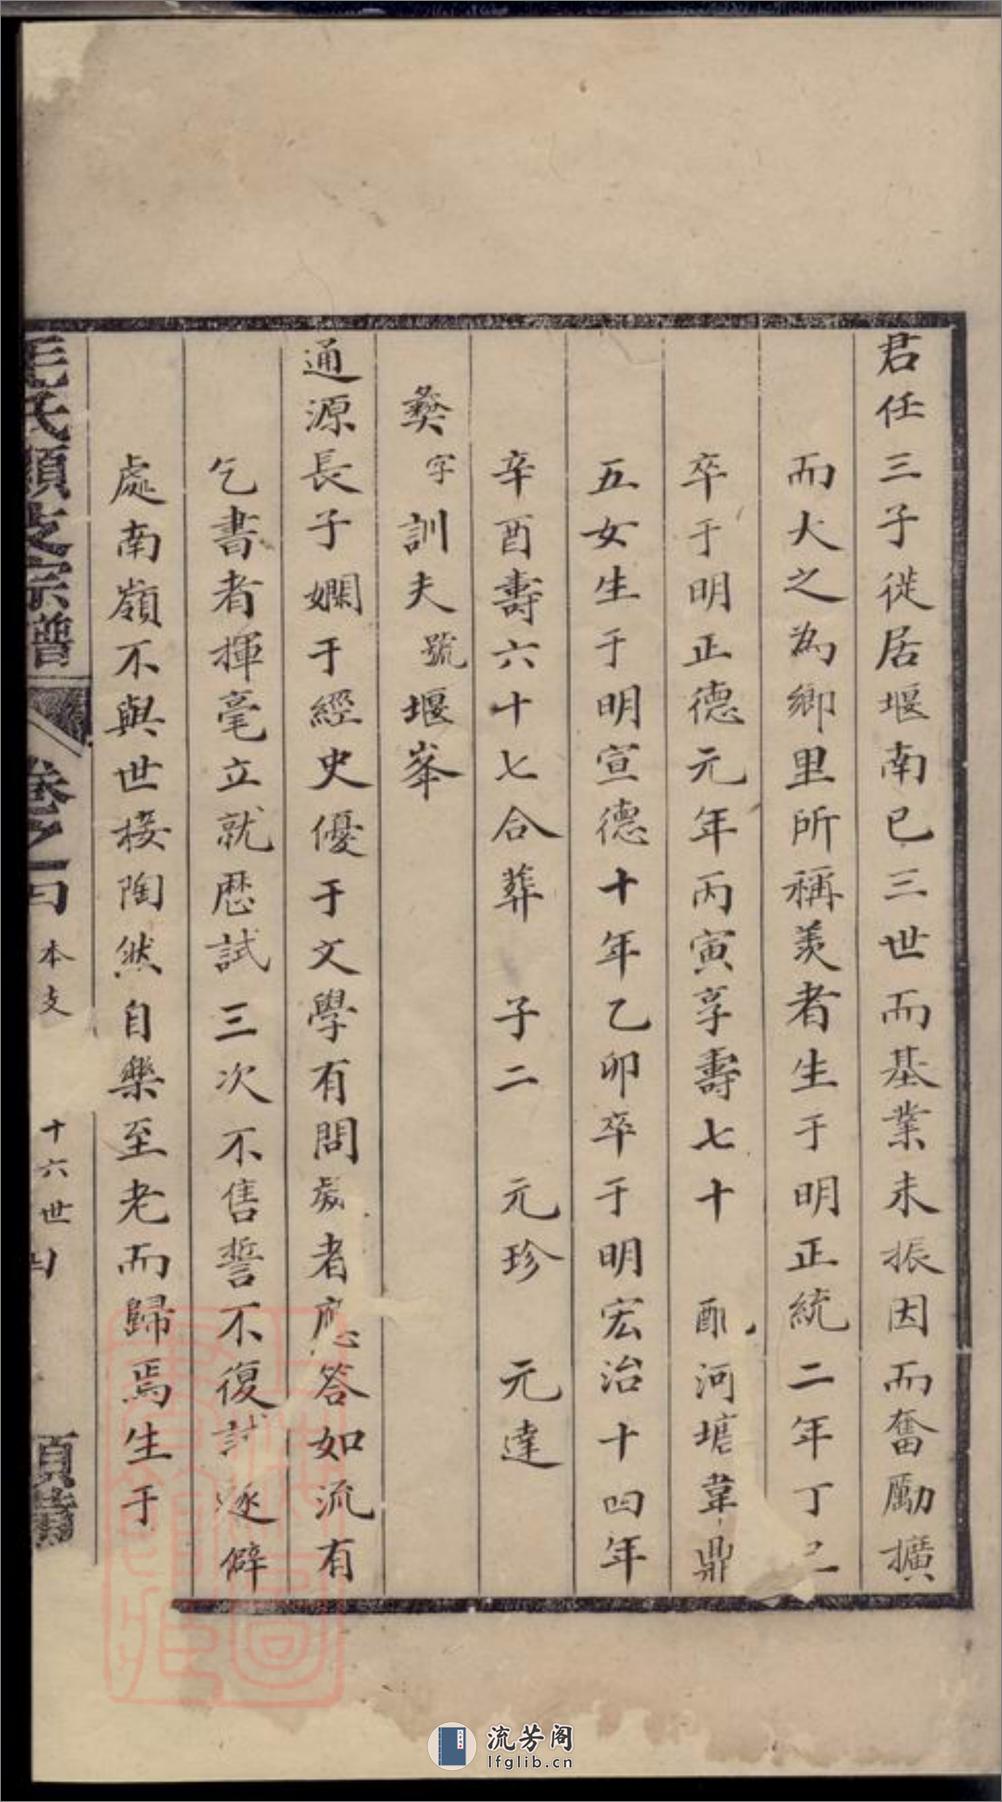 君任三子從居堰南已三世而基業未振因而奮勵擴
而大之為鄉里所稱羡者生于明正統二年丁巳
卒于明正德元年丙寅享壽七十 配河塘韋鼎
五女生于明宣德十年乙卯卒于明宏治十四年
辛酉壽六十七合葬 子二 元珍 元達
彝字訓夫號堰峯
通源長子嫻于經史優于文學有問處者應答如流有
乞書者揮毫立就歷試三次不售誓不復試遂僻
處南嶺不與世接陶然自樂至老而歸焉生于
氏 支宗譜 卷之一 本支 十六世
流芳阁
lfglib.cn